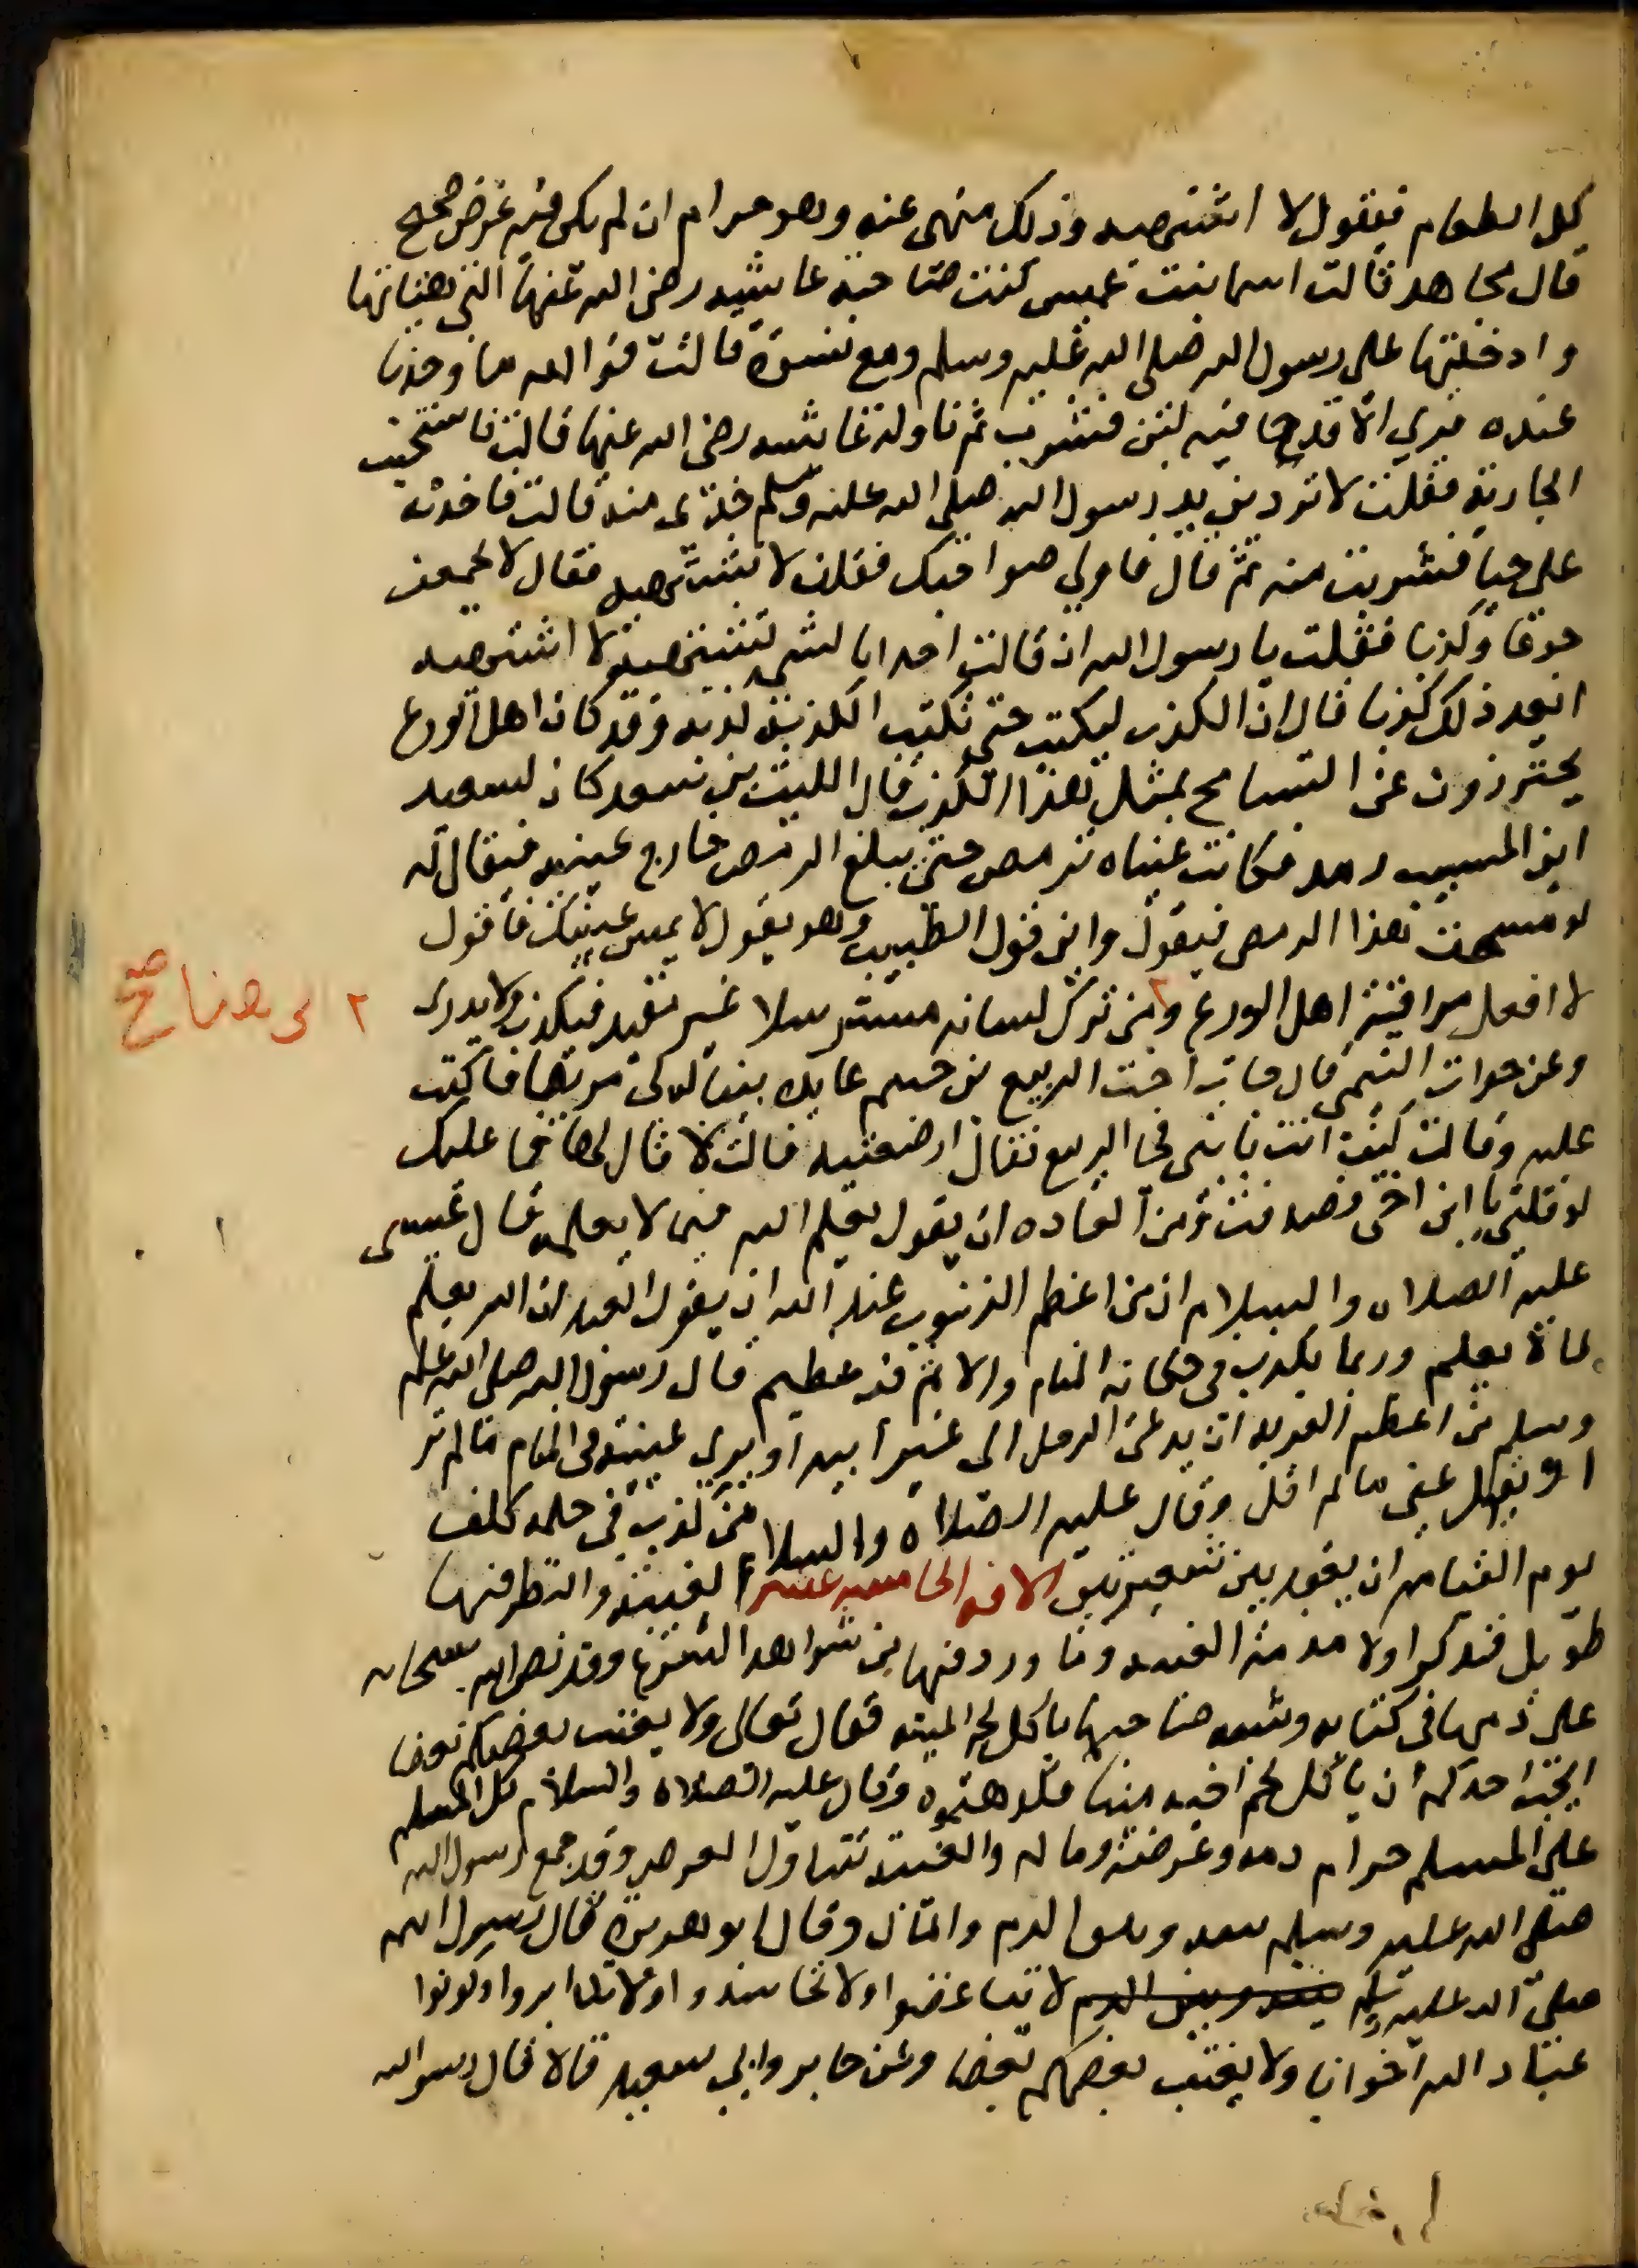 كل الطعام فيقول لا اشتهيه وذلك منهى عنه وهو حرام ان لم يكن فيه غرض صحيح
قال مجاهد قالت اسما بنت عميس كنت صاحبة عايشه رضى الله عنها التى هياتها
وادخلتها على رسول الله صلى الله عليه وسلم ومع نسوة قالت فوالله ما وجدنا
عنده قرى الا قدحا فيه لبن فشرب ثم ناوله عايشه رضى الله عنها قالت فاستحيت
الجارية فقلت لا تردين يد رسول الله صلى الله عليه وسلم خذى منه قالت فاخذته
على حيا فشربت منه ثم قال ناولى صواحبك فقلن لا نشتهيه فقال لا تجمعن
جوعا وكذبا فقلت يا رسول الله ان قالت احدانا لشى تشتهيه لا اشتهيه
ايعد ذلك كذبا قال ان الكذب ليكتب حتى تكتب الكذيبة كذيبة وقد كان اهل الورع
يحترزون عن التسامح بمثل هذا الكذب قال الليث بن سعد كان لسعيد
ابن المسيب رمد فكانت عيناه ترمص حتى يبلغ الرمص خارج عينيه فيقال له
لو مسحت هذا الرمص فيقول واين قول الطبيب وهو يقول لا تمس عينيك فاقول
لا افعل مراقبة اهل الورع ومن ترك لسانه مسترسلا غير مقيد فيكذب ولا يدرى
وعن خوات التيمى قال جات اخت الربيع بن خثيم عايدة بنى له فانكبت
عليه وقالت كيف انت يا بنى فجا الربيع فقال ارضعتيه قالت لا قال لها فما عليك
لو قلتى يا ابن اخى فصدقت ومن العاده ان يقول يعلم الله فيما لا يعلمه قال عيسى
عليه الصلاه والسلام ان من اعظم الذنوب عند الله ان يقول العبد ان الله يعلم
لما لا يعلم وربما يكذب فى حكاية المنام والاثم فيه عظيم قال رسول الله صلى الله عليه
وسلم من اعظم الفرية ان يدعى الرجل الى غير ابيه او يرى عينيه فى المنام ما لم تر
او يقول عنى ما لم اقل وقال عليه الصلاة والسلام من كذب فى حلمه كلف
يوم القيامه ان يعقد بين شعيرتين الافة الخامسه عشر الغيبة والنظر فيها
طويل فنذكر اولا مذمة الغيبه وما ورد فيها من شواهد الشرع وقد نص الله سبحانه
على ذمها فى كتابه وشبه صاحبها باكل لحم الميتة فقال تعالى ولا يغتب بعضكم بعضا
ايحب احدكم ان ياكل لحم اخيه ميتا فكرهتموه وقال عليه الصلاه والسلام كل المسلم
على المسلم حرام دمه وعرضه وماله والغيبة تتناول العرض وقد جمع رسول الله
صلى الله عليه وسلم بينه وبين الدم والمال وقال ابو هريرة قال رسول الله
صلى الله عليه وسلم بينه وبين الدم لا تباغضوا ولا تحاسدوا ولا تدابروا وكونوا
عباد الله اخوانا ولا يغتب بعضكم بعضا وعن جابر وابى سعيد قالا قال رسول الله